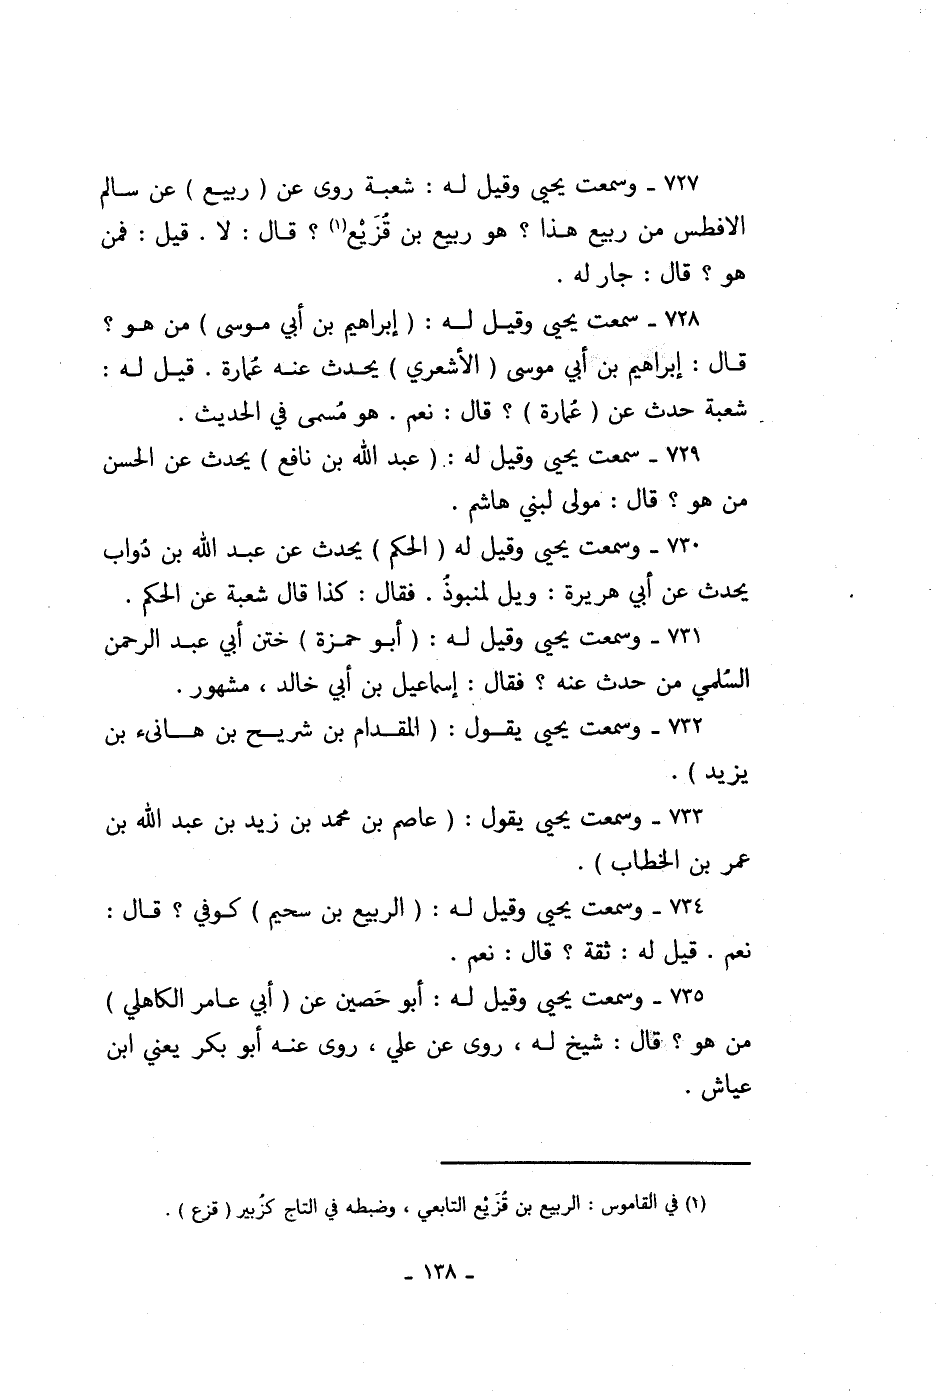 ٧٢٧ ـ وسمعت يحيى وقيل لـه : شعبـة روى عن ( ربيـع ) عن سـالم
الافطس من ربيع هـذا ؟ هو ربيع بن قُزَيْع(١) ؟ قـال : لا . قيل : فمن
هو ؟ قال : جار له .
٧٢٨ ـ سمعت يحيى وقيـل لـه : ( إبراهيم بن أبي مـوسى ) من هـو ؟
قـال : إبراهيم بن أبي موسى ( الأشعري ) يحـدث عنـه عُمارة . قيـل له :
شعبة حدث عن ( عُمارة ) ؟ قال : نعم . هو مُسمى في الحديث .
٧٢٩ ـ سمعت يحيى وقيل له : ( عبد الله بن نافع ) يحدث عن الحسن
من هو ؟ قال : مولى لبني هاشم .
٧٣٠ ـ وسمعت يحيى وقيل له ( الحكم ) يحدث عن عبـد الله بن دُواب
يحدث عن أبي هريرة : ويل لمنبوذُ . فقال : كذا قال شعبة عن الحكم .
٧٣١ ـ وسمعت يحيى وقيل لـه : ( أبـو حمـزة ) ختن أبي عبـد الرحمن
السُلمي من حدث عنه ؟ فقال : إسماعيل بن أبي خالد ، مشهور .
٧٣٢ ـ وسمعت يحيى يقـول : ( المقـدام بن شريـح بن هـانىء بن
يزيد ) .
٧٣٣ ـ وسمعت يحيى يقول : ( عاصم بن محمد بن زيد بن عبد الله بن
عمر بن الخطاب ) .
٧٣٤ ـ وسمعت يحيى وقيل لـه : ( الربيع بن سحيم ) كـوفي ؟ قـال :
نعم . قيل له : ثقة ؟ قال : نعم .
٧٣٥ ـ وسمعت يحيى وقيل لـه : أبو حَصين عن ( أبي عـامر الكاهلي )
من هو ؟ قال : شيخ لـه ، روى عن علي ، روى عنـه أبو بكر يعني ابن
عياش .
(١) في القاموس : الربيع بن قُزَيْع التابعي ، وضبطه في التاج كزُبير ( قزع ) .
ـ ١٣٨ ـ